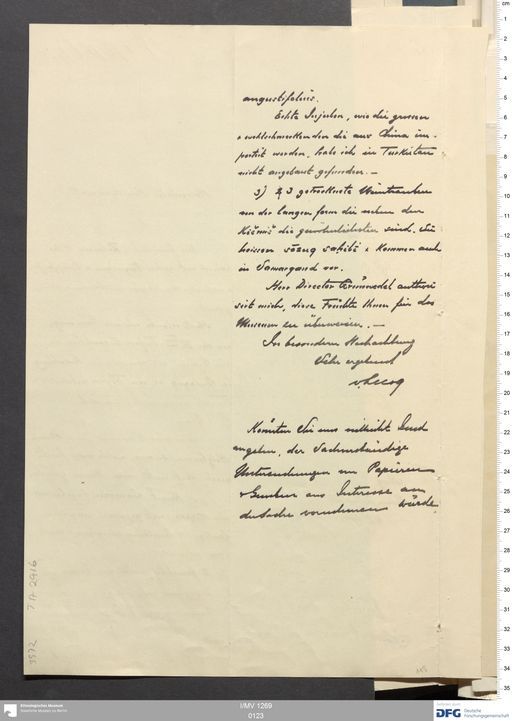 angustifolius.
Echte Jujuben, wie die grossen
& wohlschmeckenden die aus China im-
portirt werden, habe ich in Turkistan
nicht angebaut gefunden. —
3) 3 getrocknete Weintrauben
von der langen form die neben den
Kišmiš die gewöhnlichsten sind. Sie
heissen sahibi & kommen auch
in Samarqand vor.
Herr Director Grünwedel authori
sirt mich, diese Früchte Ihnen für das
Museum zu überweisen. —
In besonderer Hochachtung
Sehr ergebenst
v. Lecoq
Könnten Sie uns vielleicht Jemd
angeben, der Sachverständige
Untersuchungen von Papieren
& Geweben aus Interesse an
der Sache vornehmen würde.
7A 2916
cm
1
2
3
4
5
6
7
8
9
10
11
12
13
14
15
16
17
18
19
20
21
22
23
24
25
26
27
28
29
30
31
32
33
34
35
Ethnologisches Museum
Staatliche Museen zu Berlin
I/MV 1269
0123
gefördert durch
DFG Deutsche
Forschungsgemeinschaft